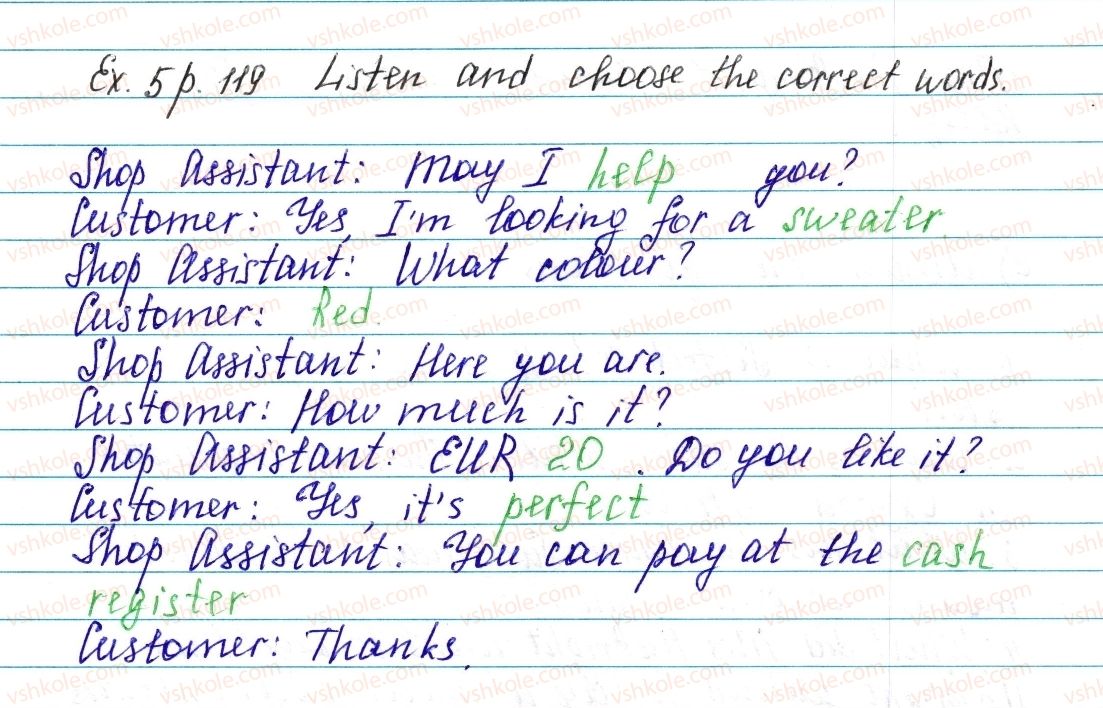 Ex. 5 p. 119 Listen and choose the correct words.
Shop Assistant: May I help you?
Customer: Yes, I'm looking for a sweater.
Shop Assistant: What colour?
Customer: Red.
Shop Assistant: Here you are.
Customer: How much is it?
Shop Assistant: EUR 20. Do you like it?
Customer: Yes, it's perfect
Shop Assistant: You can pay at the cash
register
Customer: Thanks.